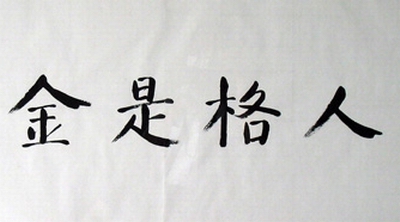 人格是金